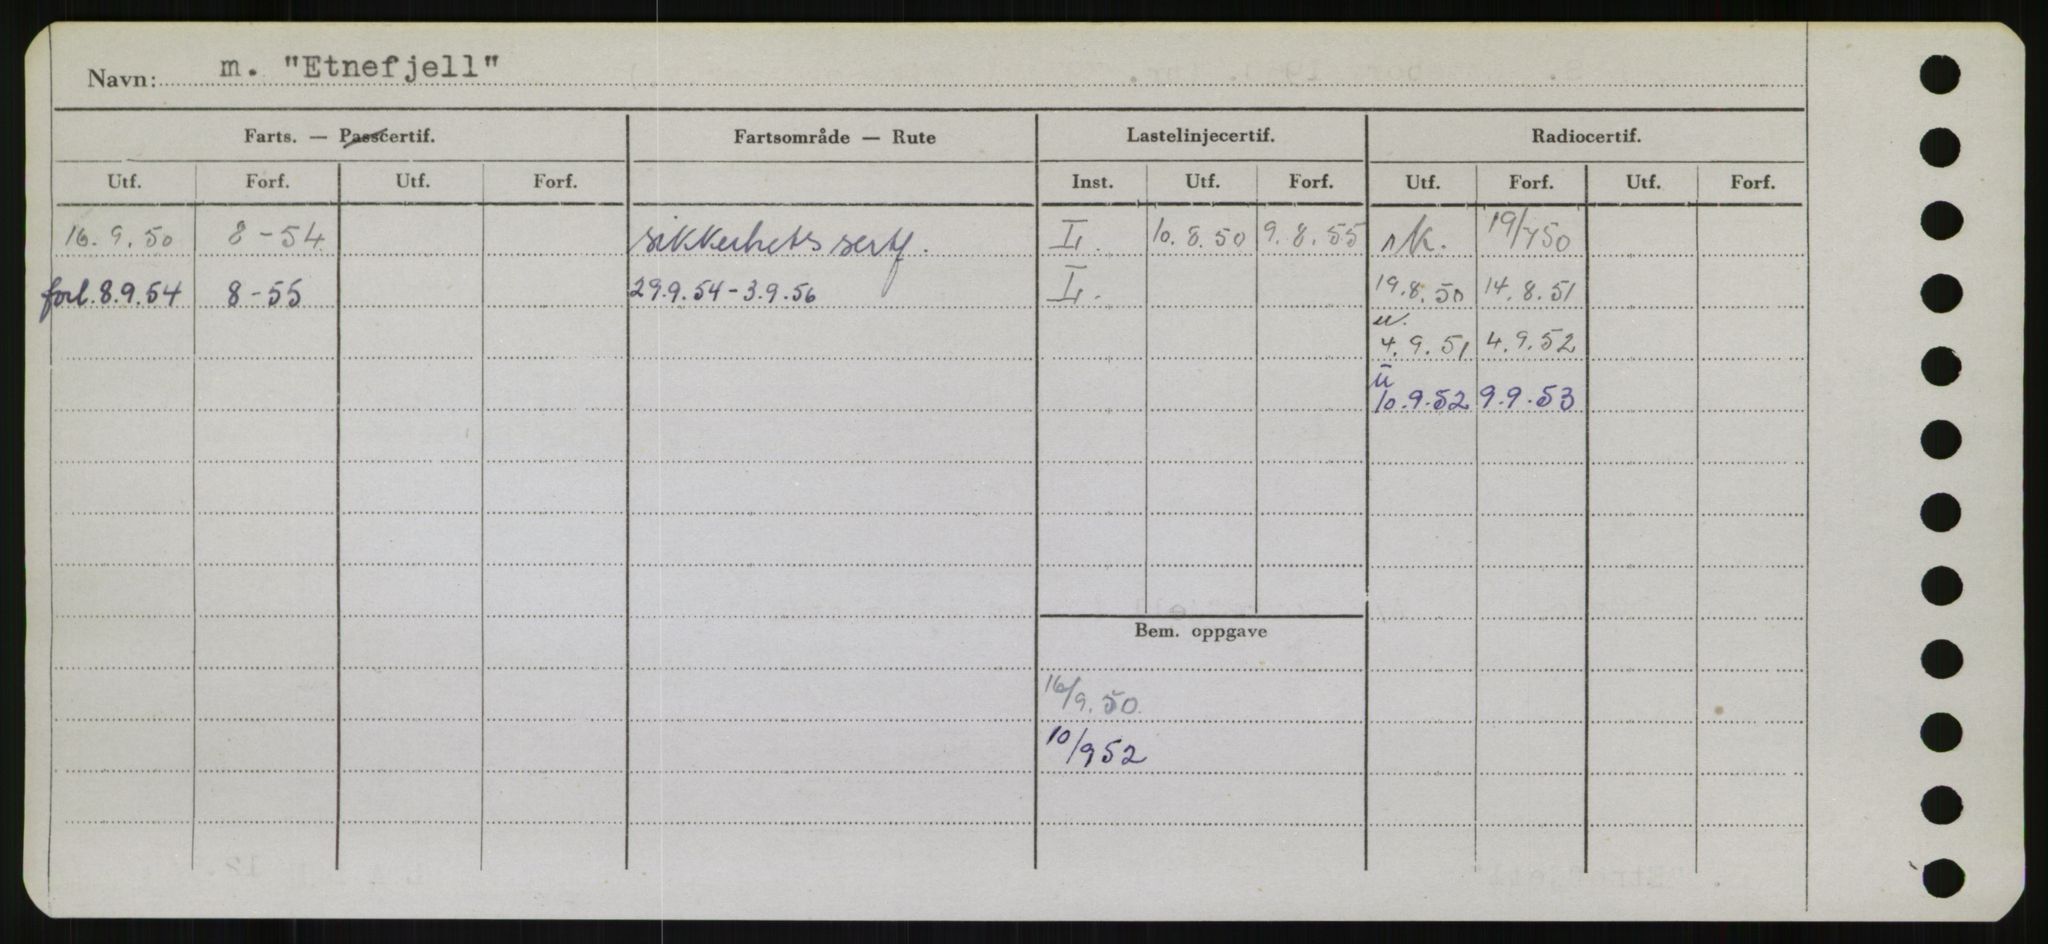 Navn: m. "Etnefjell"
Farts. — Passcertif. Fartsområde — Rute Lastelinjecertif. Radiocertif.
Utf. Forf. Utf. Forf. Inst. Utf. Forf. Utf. Forf. Utf. Forf.
16. 9. 50 8-54 sikkerhets sertf. I. 10. 8. 50 9. 8. 55 nk. 19/7 50
forl. 8.9.54 8-55 29.9.54-3.9.56 I. 19.8.50 14.8.51
4.9.51 4.9.52
10.9.52 9.9.53
Bem. oppgave
16/9.50
10/9 52